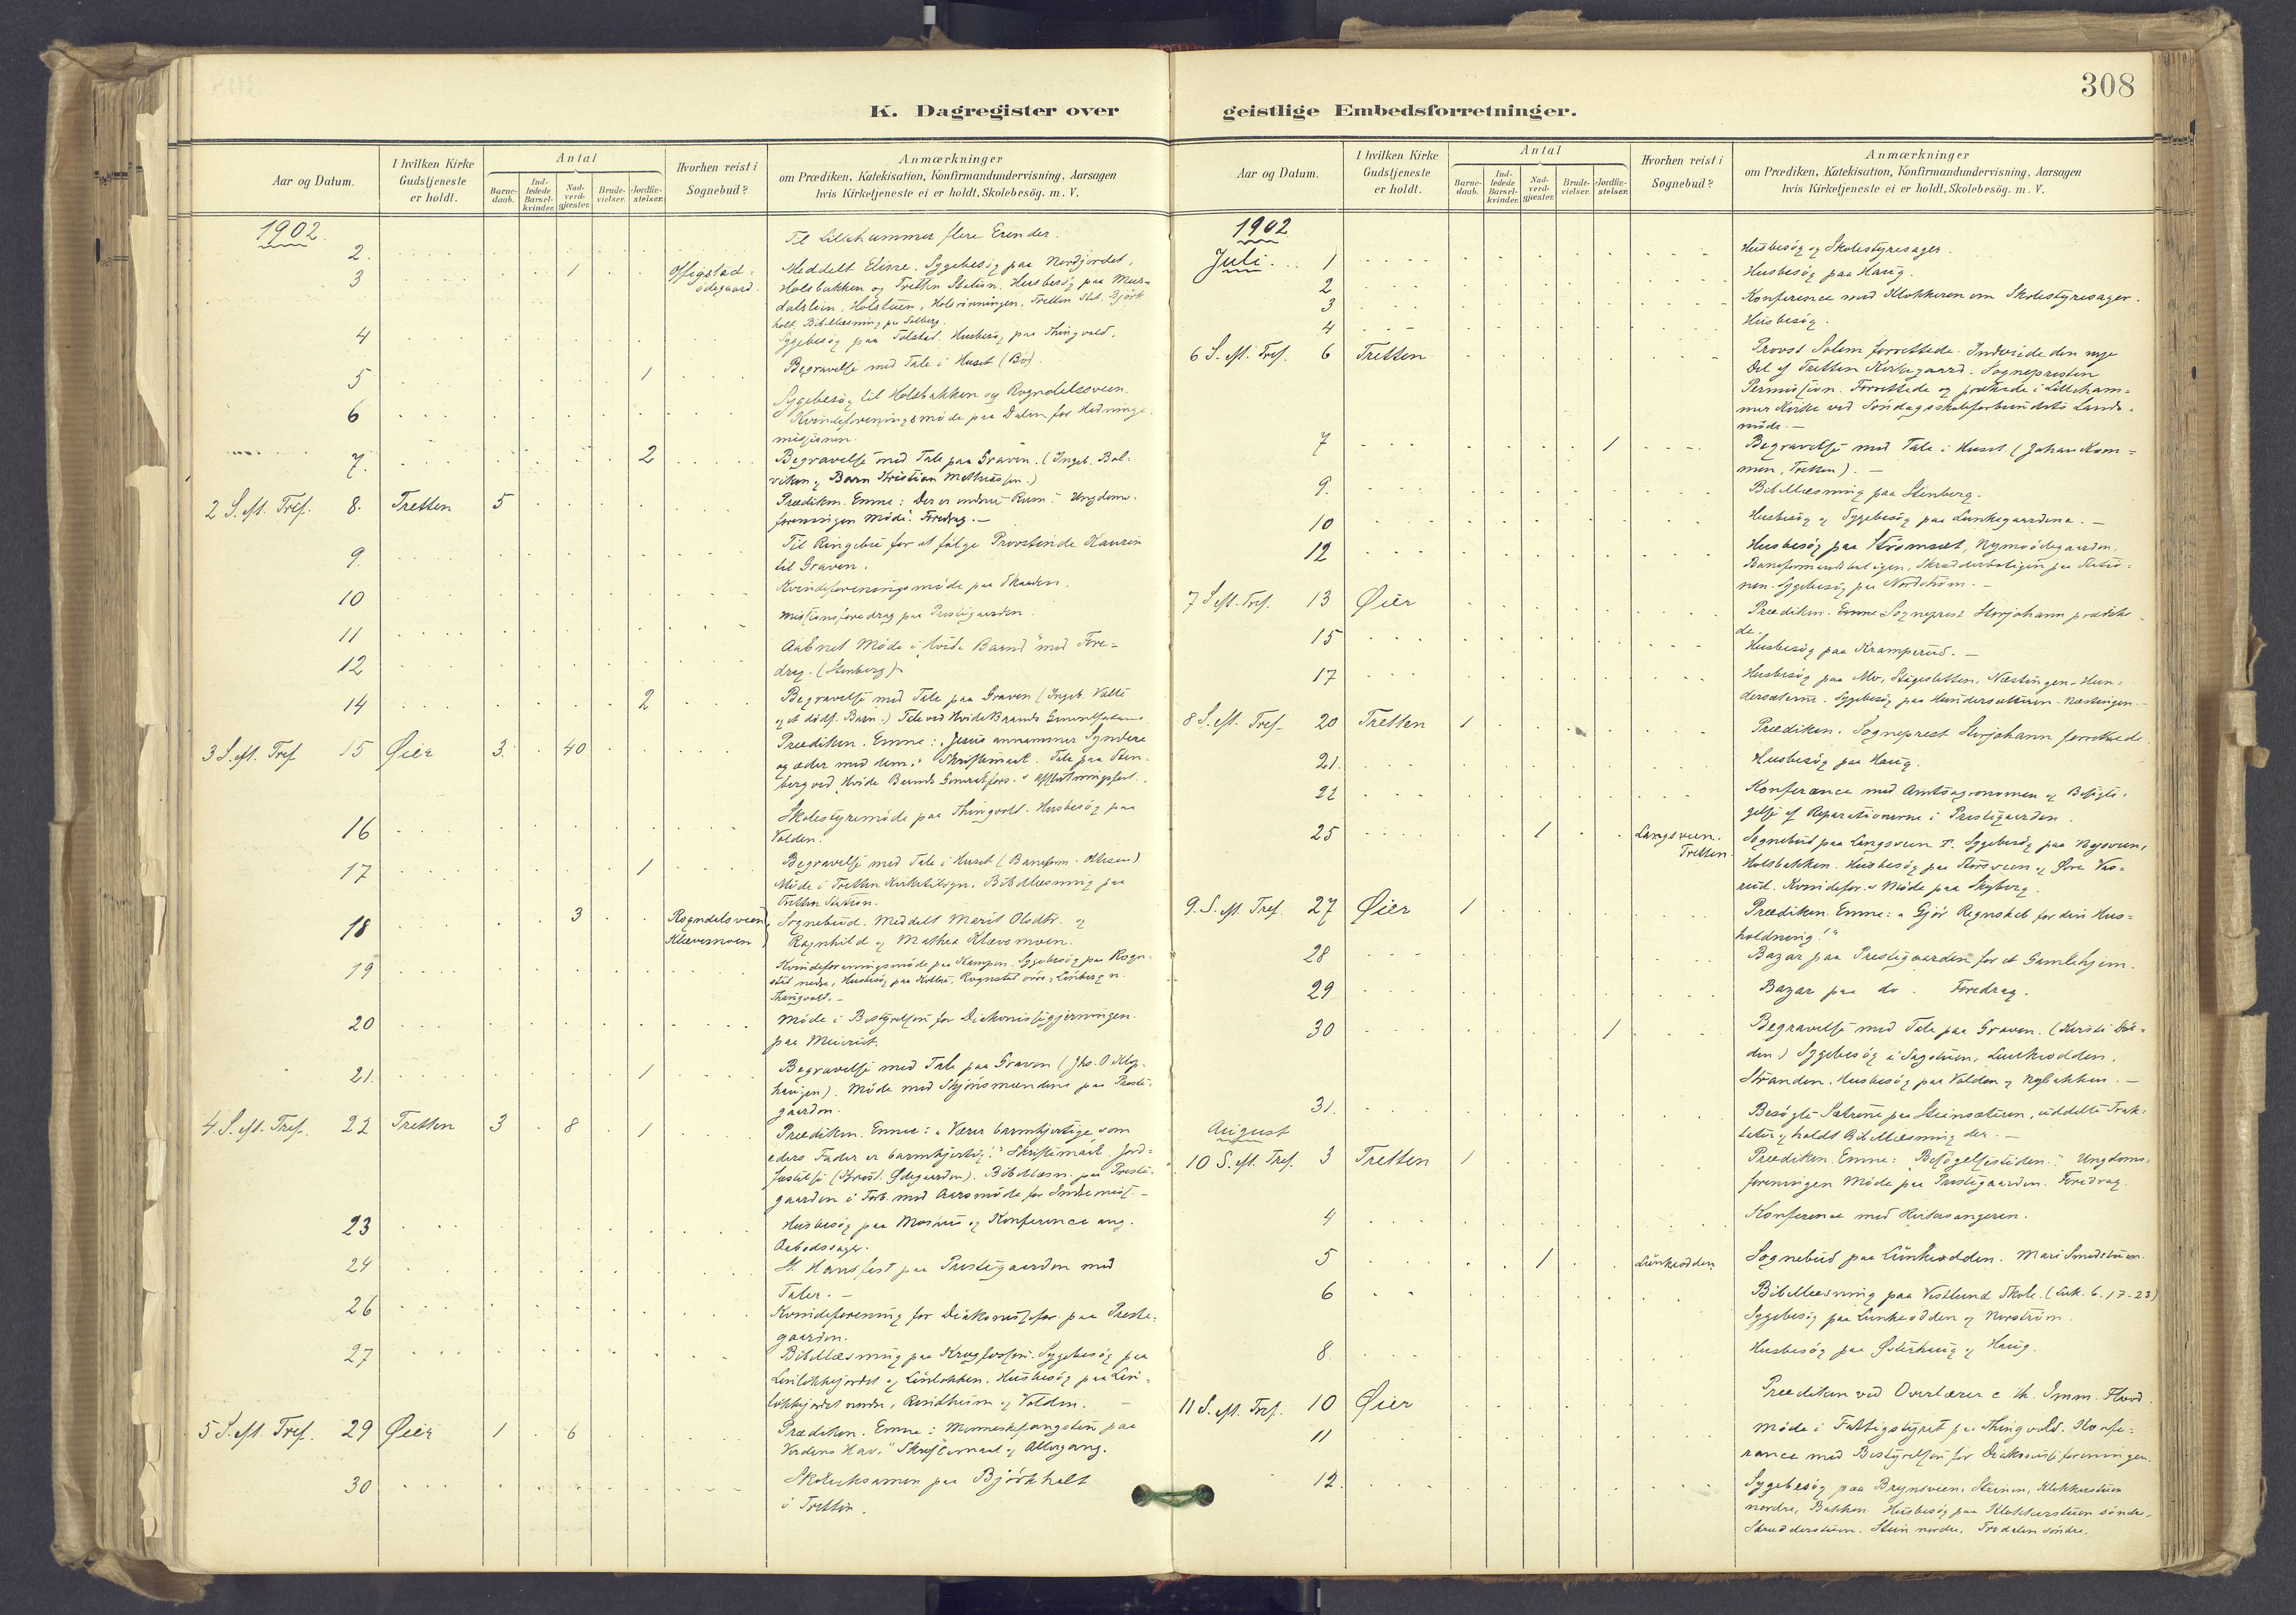 308
K. Dagregister over geistlige Embedsforretninger.
Aar og Datum.
I hvilken Kirke Gudstjeneste er holdt.
Antal
Barne-daab.
Ind-ledede Barsel-kvinder.
Nad-verd-gjæster.
Brude-vielser.
Jordfæ-stelser.
Hvorhen reist i Sognebud?
Anmærkninger
om Prædiken, Katekisation, Konfirmandundervisning, Aarsagen
hvis Kirketjeneste ei er holdt, Skolebesög. m. V.
1902.
2. Til Lillehammer flere Erender.
3 1 Offigstad- ödegaard. Meddelt Eline. Sygebesög paa Nordjordet,
Holsbakken og Tretten Station. Husbesög paa
Holstuen, Tretten
holt. Bibellæsning paa Solberg.
4 Sygebesög paa Tolstad. Husbesög paa Thingvold.
5 1 Begravelse med Tale i Huset (Bö).
6 Sygebesög til Holsbakken og Rogndelsveen.
Kvindeforeningsmöde paa Dalen for Hedninge-
missionen.
7. 2 Begravelse med Tale paa Graven. (Ingeb. Bal-
viken og Barn Kristian Mathiassen.)
2 S. eft. Tref. 8. Tretten 5 Prædiken. Emne: Der er endnu Rum. Ungdoms-
foreningen Möde. Foredrag. —
9. Til Ringebu for at fölge Provstinde Kaurin
til Graven.
10 Kvindeforeningsmöde paa Skaaden.
11 Missionsforedrag paa Prestegaarden.
12 Aabnet Möde i "Hvide Baand" med Fore-
drag. (Stenberg)
14 2 Begravelse med Tale paa Graven (Ingeb. Valle
og et dödf. Barn.) Tale ved Hvide Baands
3 S. eft. Tref 15 Øier 3. 40 Prædiken. Emne: "Jesus annammer Syndere
og æder med dem." Skriftemaal. Tale paa Sten-
berg ved Hvide Baands
16 Skolestyremöde paa Thingvold. Husbesög paa
Volden.
17 1 Begravelse med Tale i Huset
Möde i Tretten Kirketilsyn. Bibellæsning paa
Tretten Station.
18 3 Rogndelsveen, Klævemoen Sognebud. Meddelt Marit Olsdtr. og
Ragnhild og Mathea Klævemoen.
19 Kvindeforeningsmöde paa Kampen. Sygebesög paa Rogn-
stad nedre, Husbesög paa
Thingvold. —
20 Möde i Bestyrelsen for Diakonissegjerningen
paa Meieriet.
21. 1 Begravelse med Tale paa Graven
Möde med Skjönsmændene paa Preste-
gaarden.
4 S. eft. Tref. 22 Tretten 3 8 1 Prædiken. Emne: "Værer barmhjertige som
eders Fader er barmhjertig." Skriftemaal. Jord-
fæstelse Bibellæsn. paa Preste-
gaarden i Forb. med Aarsmöde for Indremis. —
23 Husbesög paa Moshus og Konference ang.
Arbeidssager.
24 St. Hansfest paa Prestegaarden med
Taler. —
26 Kvindeforening for Diakonissefor. paa Preste-
gaarden.
27 Bibellæsning paa Sygebesög paa
Linlökkejordet og Linlökken. Husbesög paa Lin-
lökkejordet nordre, og Volden.
5 S. eft. Tref. 29 Øier 1 6 Prædiken. Emne: Menneskefangsten paa
Verdens Hav. Skriftemaal og Altergang.
30 Skoleeksamen paa Björkholt
i Tretten.
Aar og Datum.
I hvilken Kirke Gudstjeneste er holdt.
Antal
Barne-daab.
Ind-ledede Barsel-kvinder.
Nad-verd-gjæster.
Brude-vielser.
Jordfæ-stelser.
Hvorhen reist i Sognebud?
Anmærkninger
om Prædiken, Katekisation, Konfirmandundervisning, Aarsagen
hvis Kirketjeneste ei er holdt, Skolebesög. m. V.
1902
Juli. 1 Husbesög og Skolestyresager.
2 Husbesög paa Haug.
3 Konference med Klokkeren om Skolestyresager.
4 Husbesög.
6 S. eft. Tref. 6 Tretten Provst Solem forrettede. Indviede den nye
Del af Tretten Kirkegaard. Sognepresten
Permission. Forrettede og prækede i Lilleham-
mer Kirke ved Söndagsskoleforbundets Lands-
möde. —
7 1 Begravelse med Tale i Huset (Johan Kom-
men, Tretten). —
9. Bibellæsning paa Stenberg.
10 Husbesög og Sygebesög paa Lunkegaardene. —
12 Husbesög paa Strömsæt, Nymoödegaarden,
Baneformandsboligen, Skrædderboligen paa Statio-
nen. Sygebesög paa Nordström. —
7 S. eft. Tref. 13 Øier Prædiken. Emne Sogneprest Storjohann prædike-
de.
15 Husbesög paa Kramperud. —
17 Husbesög paa Mo, Stigesletten, Næstingen-Hun-
dersæterne. Sygebesög paa Hundersæteren Næstingen. —
8 S. eft. Tref. 20 Tretten 1 Prædiken. Sogneprest Storjohann forrettede.
21. Husbesög paa Haug.
22 Konferance med Amtsagronomen og Besigti-
gelse af Reparationerne i Prestegaarden.
25 1 Langsveen, Tretten Sognebud paa Langsveen T. Sygebesög paa
Holsbakken. Husbesög paa
Kvindefor.s Möde paa Skyberg.
9. S. eft. Tref. 27 Øier 1 Prædiken. Emne: "Gjör Regnskab for din Hus-
holdning!"
28 Bazar paa Prestegaarden for et Gamlehjem.
29 Bazar paa do. Foredrag.
30 1 Begravelse med Tale paa Graven.
Sygebesög i Sagstuen, Lunkeodden,
Stranden. Husbesög paa Volden og Nybakken. —
31. Besögte Sætrene paa Steinsæteren, uddelte Trak-
tater og holdt Bibellæsning der. —
August
10 S. eft. Tref. 3 Tretten 1 Prædiken. Emne: "Besögelsestiden." Ungdoms-
foreningen Möde paa Prestegaarden. Foredrag.
4 Konference med Kirkesangeren.
5 1 Lunkeodden Sognebud paa Lunkeodden. Mari Smedstuen.
6 Bibellæsning paa Vestlund Skole. (Luk. 6. 17-23)
Sygebesög paa Lunkeodden og Norström.
8. Husbesög paa Østerhaug og Haug.
11 S. eft. Tref. 10 Øier Prædiken ved Overlærer c. th. Imm. Flood.
11 Möde i Fattigstyret paa Thingvold. Konfe-
rance med Bestyrelsen for Diakonisseforeningen.
12. Sygebesög paa Brynsveen, Steinen, Klokkerstuen
nordre, Bakken. Husbesög paa Klokkerstuen söndre,
Skrædderstuen. Stein nordre, Trodalen söndre.